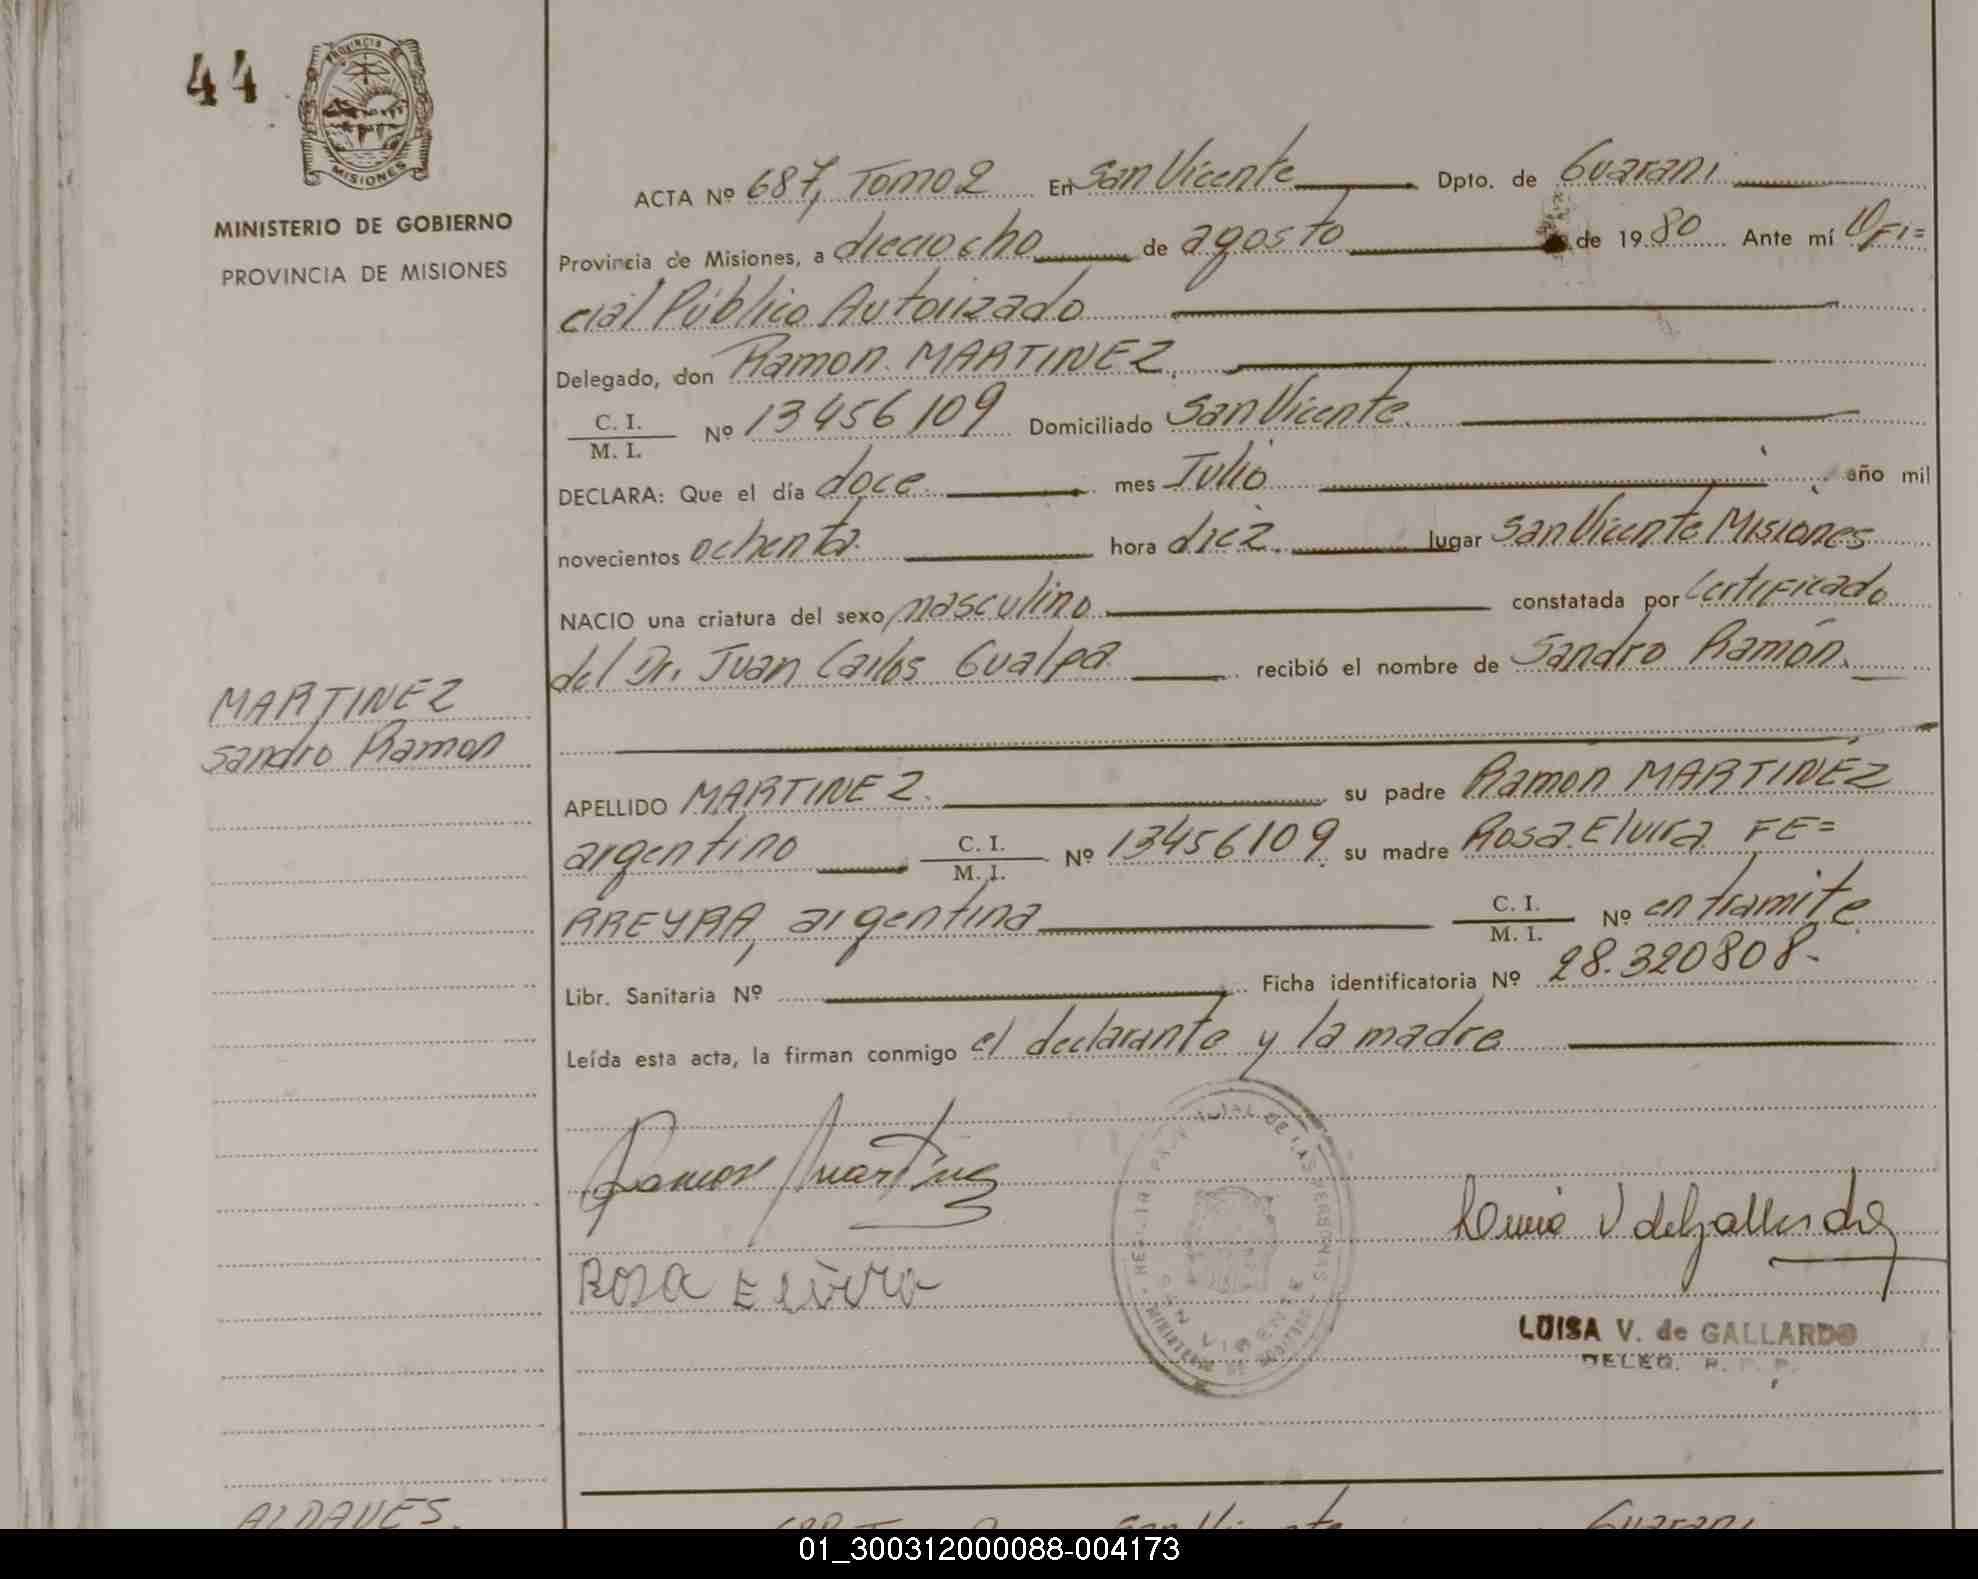 44
PROVINCIA DE
MISIONES
MINISTERIO DE GOBIERNO
PROVINCIA DE MISIONES
ACTA Nº 687, Tomo 2 En San Vicente Dpto. de Guarani
Provincia de Misiones, a dieciocho de agosto de 1980 Ante mí Ofi=
cial Público Autorizado
Delegado, don Ramon MARTINEZ
C. I.
M. I. Nº 13456109 Domiciliado San Vicente
DECLARA: Que el día doce mes Julio año mil
novecientos ochenta hora diez lugar San Vicente Misiones
NACIO una criatura del sexo masculino constatada por certificado
del Dr. Juan Carlos Gualpa recibió el nombre de Sandro Ramón
MARTINEZ
Sandro Ramon
APELLIDO MARTINEZ su padre Ramón MARTINEZ
argentino C. I. M. I. Nº 13456109 su madre Rosa Elvira FE=
RREYRA, argentina C. I. M. I. Nº en tramite
Libr. Sanitaria Nº Ficha identificatoria Nº 28.320808.-
Leída esta acta, la firman conmigo el declarante y la madre
Ramon Martinez
Luisa V de Gallardo
Rosa Elvira
LUISA V. de GALLARDO
DELEG. R. P. P.
SAN VICENTE
ALDAVES
San Vicente Guarani
01_300312000088-004173